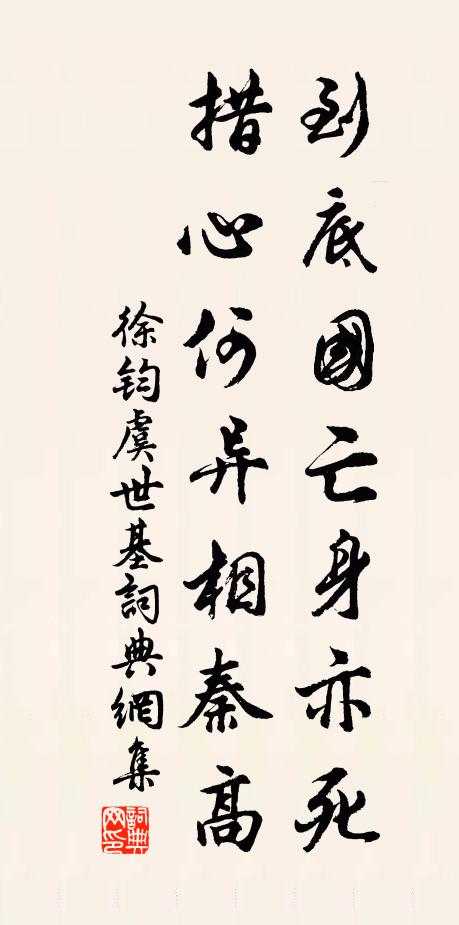 到底國亡身亦死
措心何异相秦高
徐鈞虞世基詞典網集
詞典網印